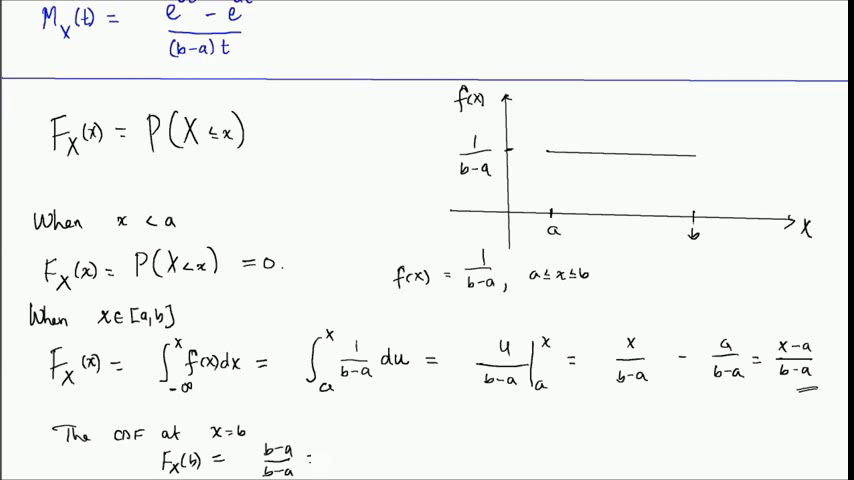 M_X(t) = (e − e)/((b-a)t)
F_X(x) = P(X ≤ x)
f(x)
1/(b-a)
a b X
When x < a
F_X(x) = P(X < x) = 0.
f(x) = 1/(b-a), a ≤ x ≤ b
When x ∈ [a,b]
F_X(x) = ∫_{-∞}^{x} f(x)dx = ∫_{a}^{x} 1/(b-a) du = u/(b-a) |_{a}^{x} = x/(b-a) - a/(b-a) = (x-a)/(b-a)
The CDF at x=b
F_X(b) = (b-a)/(b-a) =